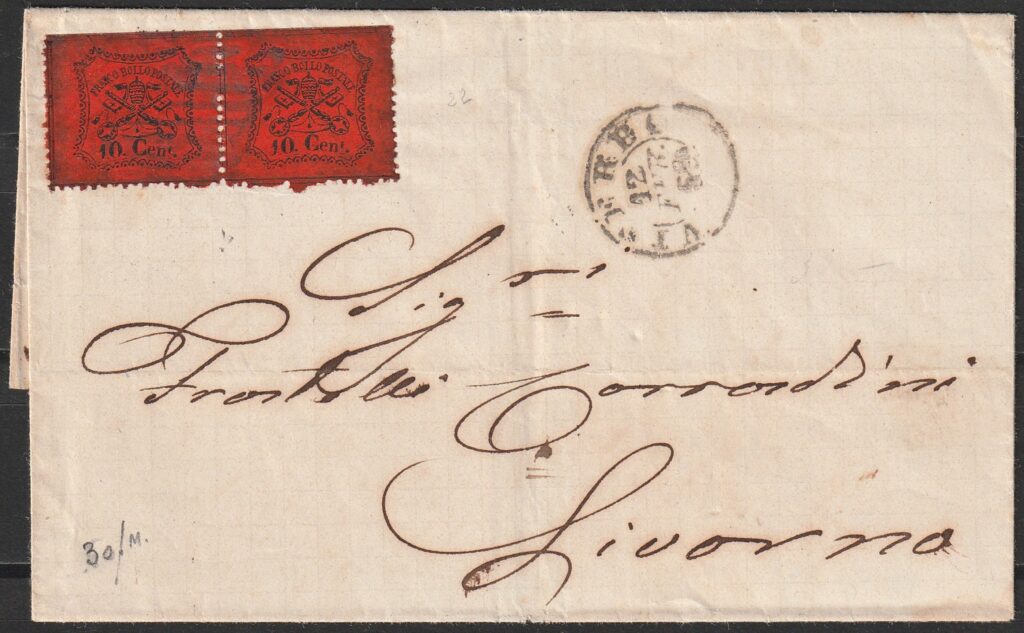 FRANCO BOLLO POSTALE
10. Cent.
FRANCO BOLLO POSTALE
10. Cent.
22
VITERBO
12
Sig ri
Fratelli Corradini
Livorno
30/M.